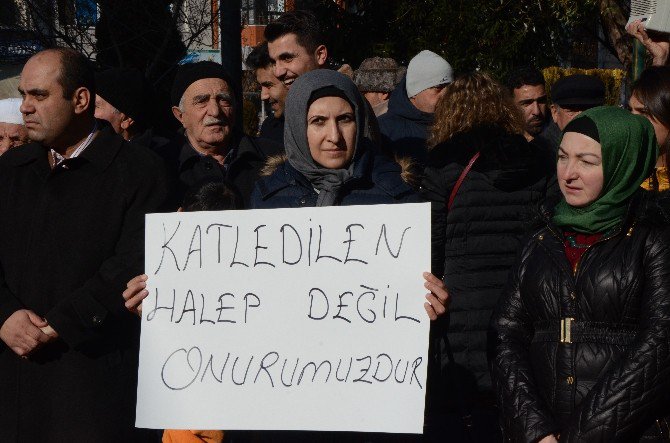 KATLEDİLEN
HALEP DEĞİL
ONURUMUZDUR